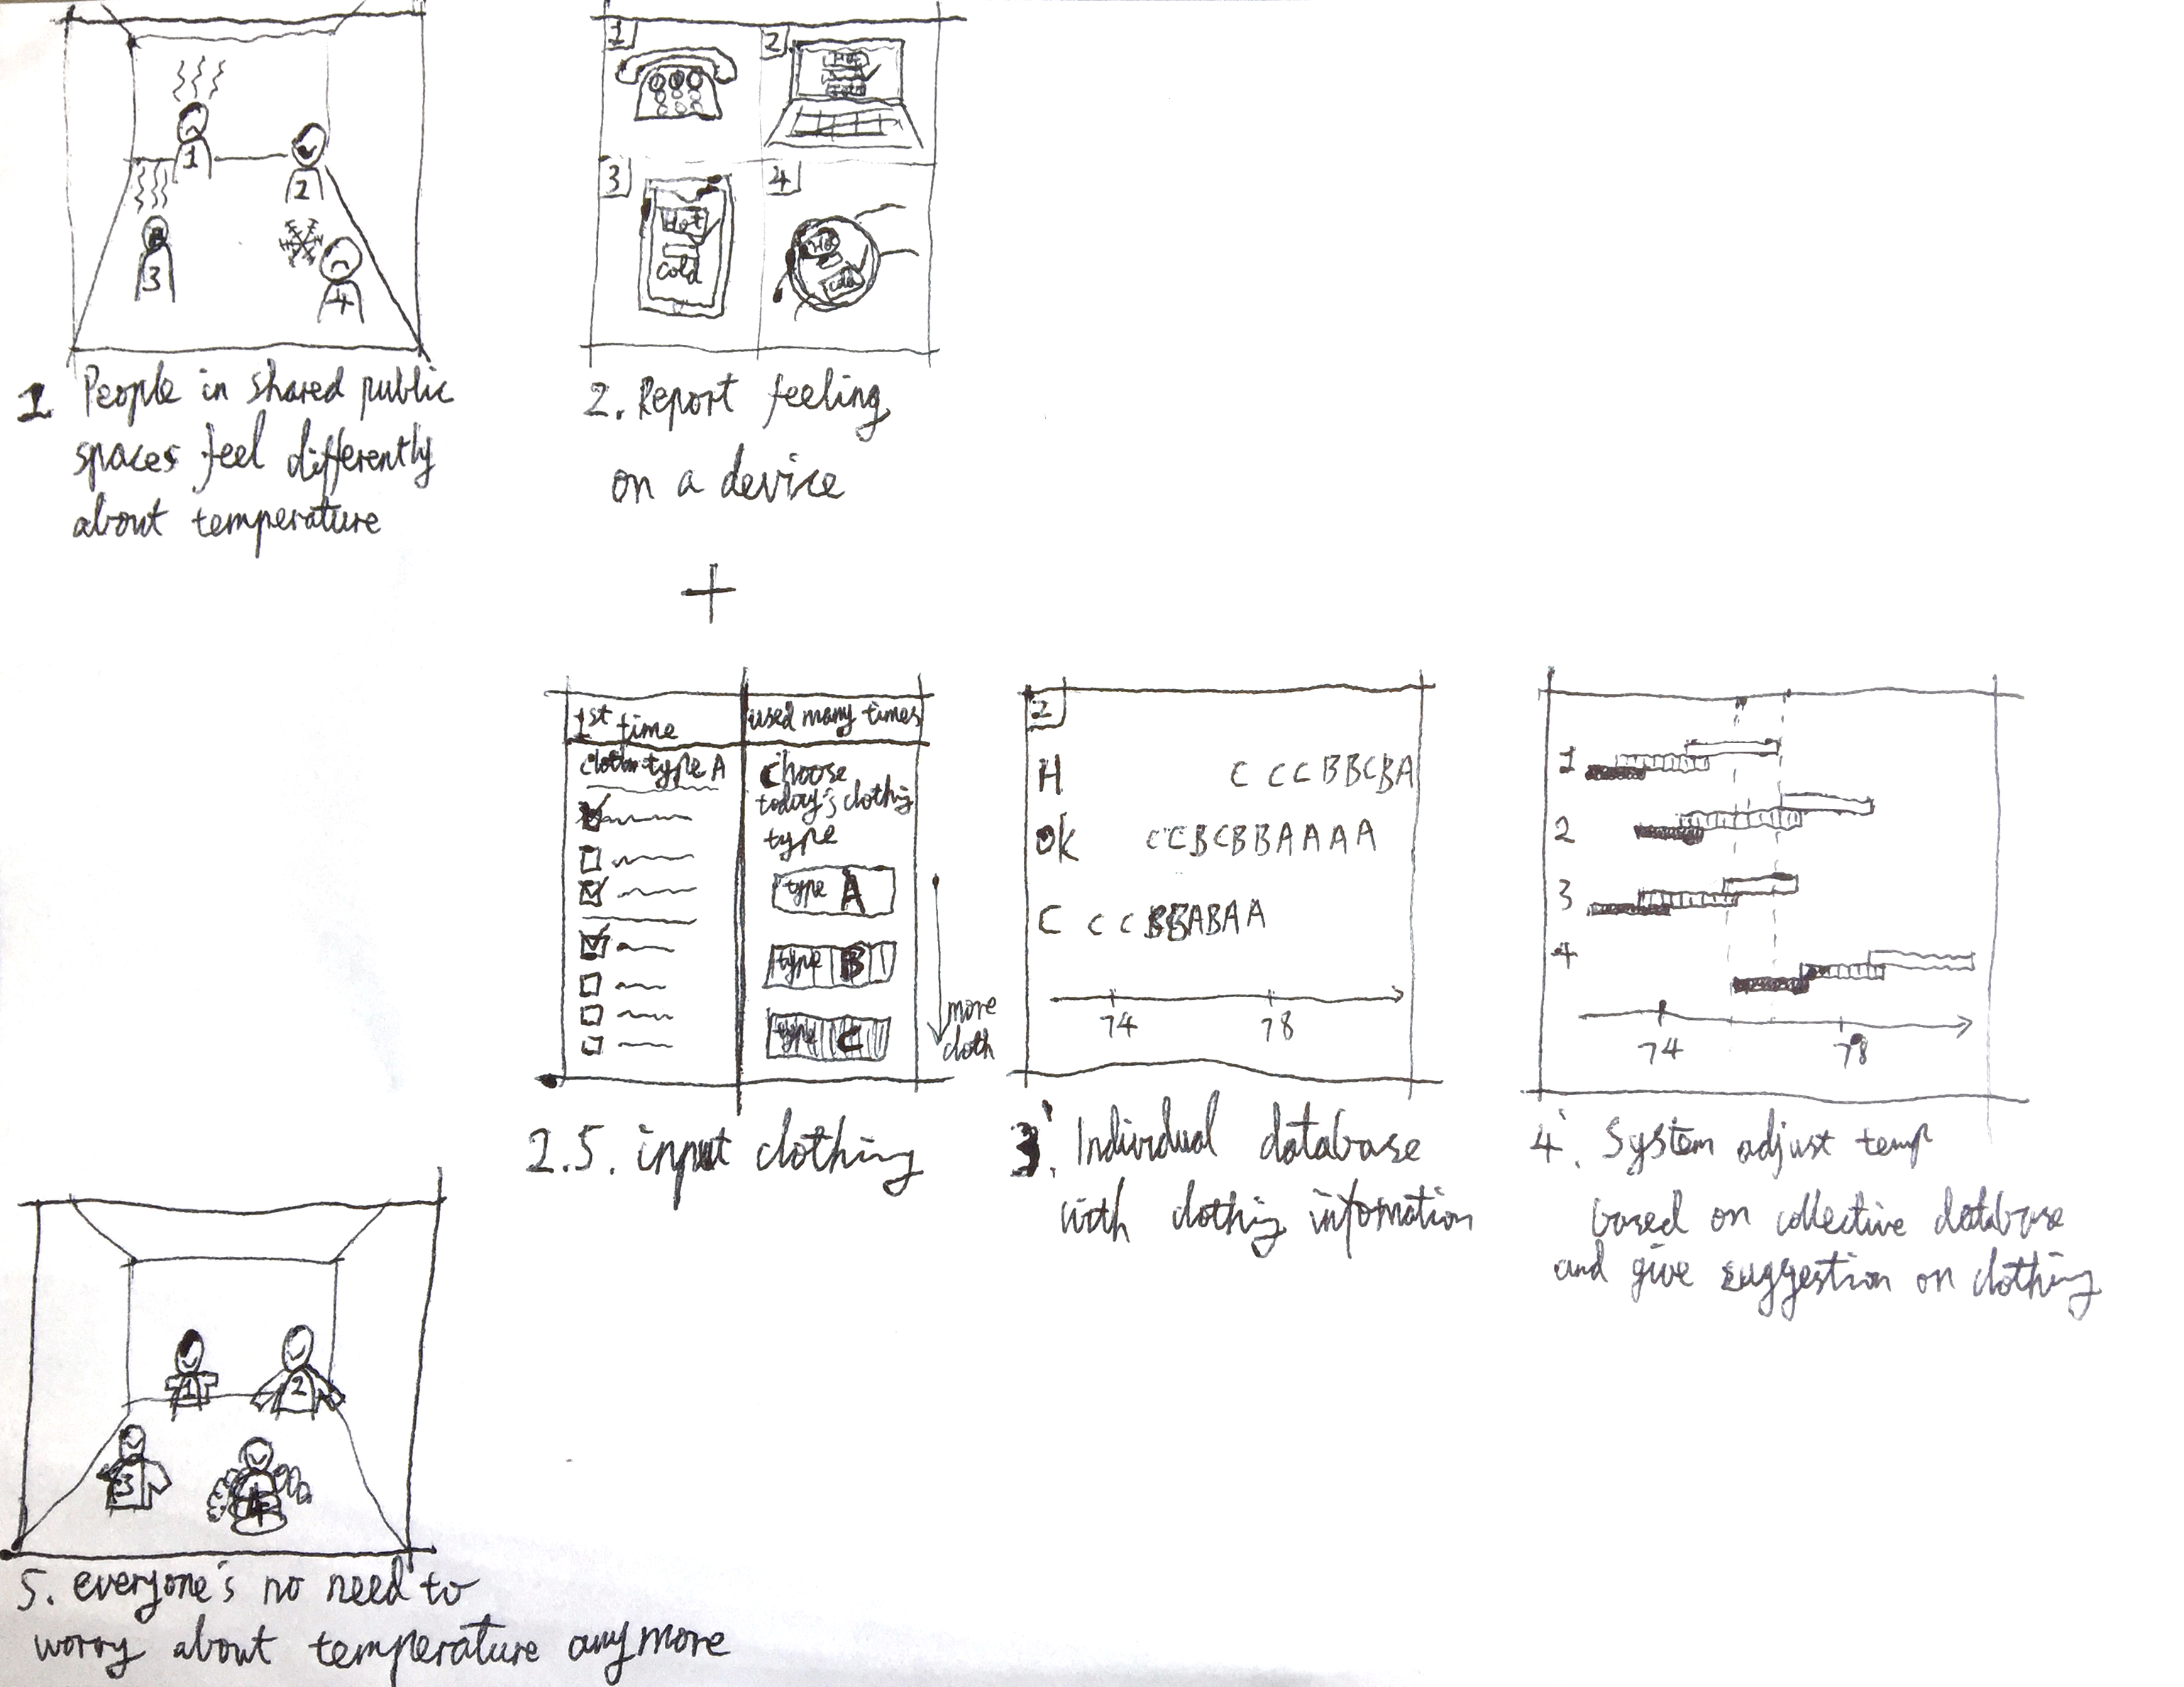 1
2
3
4
1. People in shared public
spaces feel differently
about temperature
1
2
3
Hot
cold
4
Hot
cold
2. Report feeling
on a device
+
1st time
clothing type A
used many times
Choose
today's clothing
type
type A
type B
type C
more
cloth
2.5. input clothing
2
H C C C B B C B A
Ok C C B C B B A A A A
C C C B B A B A A
74 78
3'. Individual database
with clothing infomation
1
2
3
4
74 78
4'. System adjust temp
based on collective database
and give suggestion on clothing
1
2
3
4
5. everyone's no need to
worry about temperature anymore